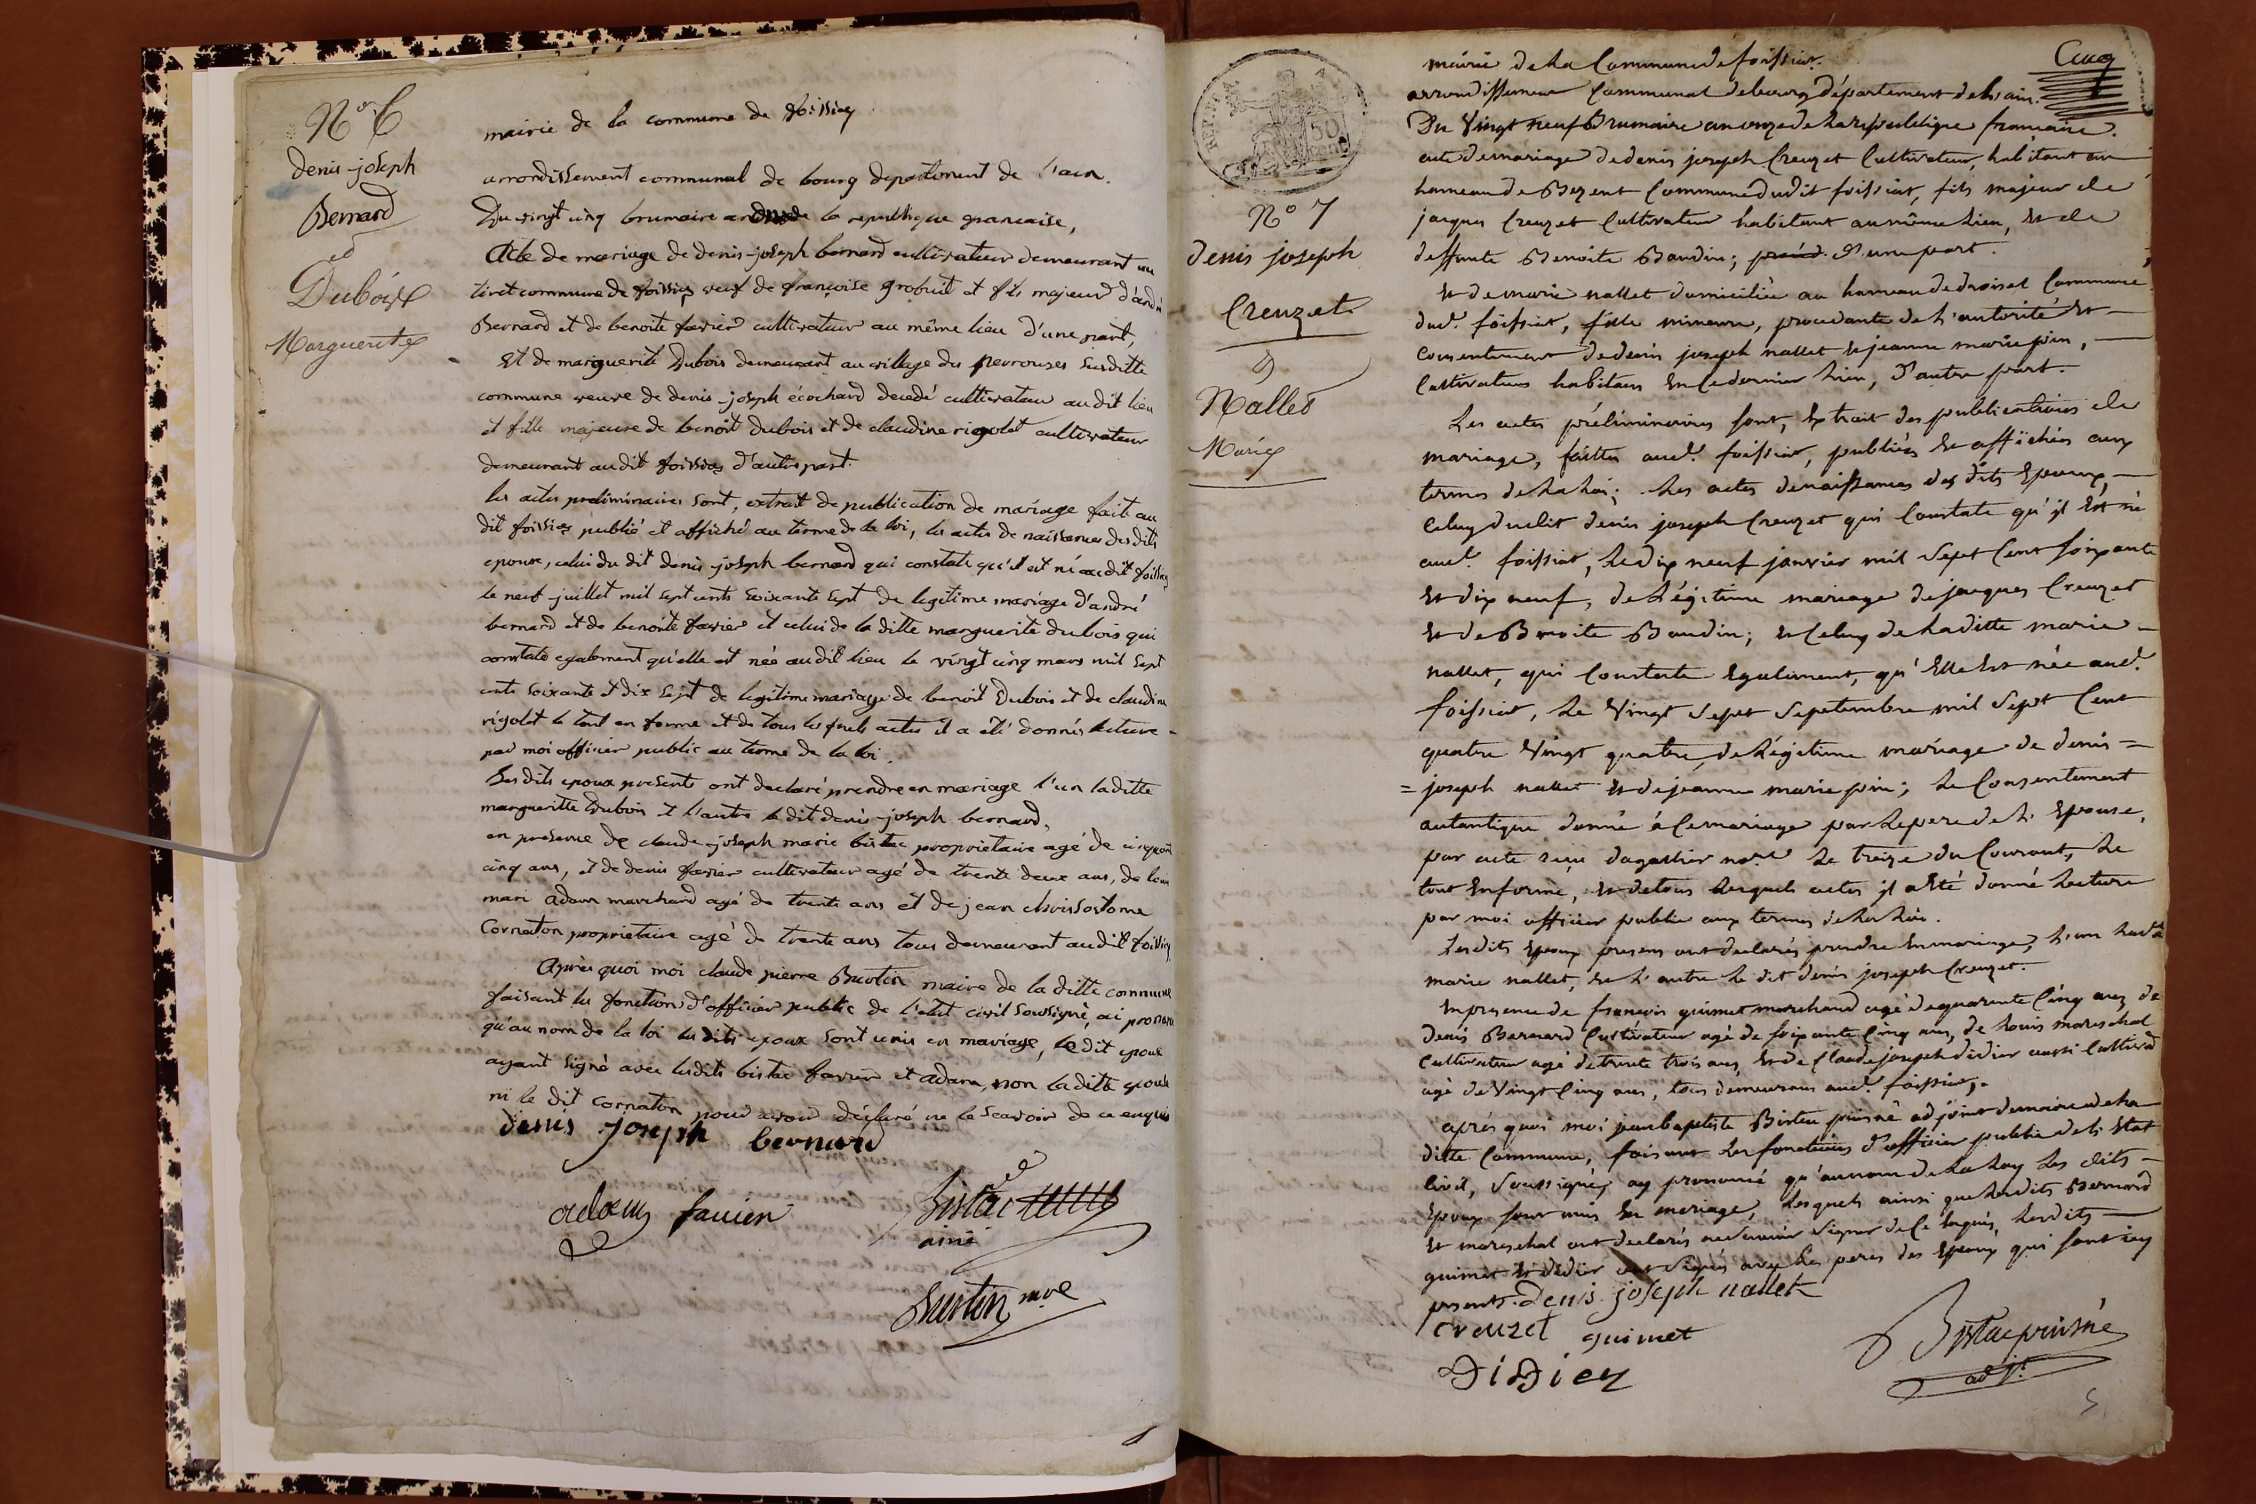 N° 6
denis-joseph
Bernard
et
Duboise
Marguerite
mairie de la commune de foissiag
arrondissement communal de bourg departement de l'ain.
Du vingt cinq brumaire an onze de la republique francaise,
Acte de mariage de denis-joseph bernard cultivateur demeurant au
tiret commune de foissiag veuf de françoise grobuit et fils majeur d'andré
Bernard et de benoite favier cultivateur au même lieu d'une part,
et de marguerite Dubois demeurant au village des perrouses susditte
commune veuve de denis-joseph écochard decedé cultivateur au dit lieu
et fille majeure de benoit dubois et de claudine rigolet cultivateur
demeurant au dit foissiag d'autre part.
les actes preliminaires sont, extrait de publication de mariage fait au
dit foissiag publié et affiché au terme de la loi, les actes de naissances des dits
epoux, celui du dit denis-joseph bernard qui constate qu'il est né au dit foissiag
le neuf juillet mil sept cents soixante sept de legitime mariage d'andré
bernard et de benoite favier et celui de la ditte marguerite dubois qui
constate egalement qu'elle est née au dit lieu le vingt cinq mars mil sept
cents soixante et dix sept de legitime mariage de benoit Dubois et de claudine
rigolet le tout en forme et de tous les quels actes il a été donnés lecture
par moi officier public au terme de la loi.
Les dits epoux presents ont declaré prendre en mariage l'un laditte
margueritte Dubois et l'autre le dit denis-joseph bernard,
en presence de claude-joseph marie bistac proprietaire agé de cinquante
cinq ans, et de denis favier cultivateur agé de trente deux ans, de
mari adam marchand agé de trente ans et de jean chrissostome
Cornaton proprietaire agé de trente ans tous demeurant au dit foissiag
Après quoi moi claude pierre Burtin maire de la ditte commune
faisant les fonctions d'officier public de l'etat civil soussigné, ai prononcé
qu'au nom de la loi les dits epoux sont unis en mariage, le dit epoux
ayant signé avec lesdits bistac favier et adam, non laditte epouse
ni le dit cornaton pour avoir déclaré ne le scavoir de ce enquis
denis joseph bernard
adam favier Bistac
ainé
Burtin mre
Cinq
N° 7
denis joseph
Creuzet.
et
Nallet
Marie
mairie de la Commune de foissiat.
arrondissement Communal de bourg département de l'ain.
Du Vingt neuf Brumaire an onze de la république francaise.
acte de mariage de denis joseph Creuzet Cultivateur, habitant au
hameau de Bezent Commune dudit foissiat, fils majeur de
jacques Creuzet Cultivateur habitant au même lieu, et de
deffunte Benoite Baudin; d'une part.
et de marie nallet domiciliée au hameau de Commune
dud.t foissiat, fille mineure, procedante de l'autorité et
consentement de denis joseph nallet et jeanne marie pin,
Cultivateurs habitans en ce dernier lieu, d'autre part.
Les actes préliminaires sont, Extrait des publications de
mariage, faittes aud.t foissiat, publiées et affichées aux
termes de la loi; Les actes de naissances des dits Epoux,
Celuy dudit denis joseph Creuzet qui Constate qu'il Est né
aud.t foissiat, le dix neuf janvier mil sept Cent soixante
et dix neuf, de Légitime mariage de jacques Creuzet
et de Benoite Baudin; et Celuy de la ditte marie
nallet, qui Constate Egalement, qu'Elle Est née aud.t
foissiat, le Vingt sept septembre mil sept Cent
quatre Vingt quatre, de Légitime mariage de denis =
= joseph nallet et de jeanne marie pin; Le Consentement
autantique donné à Ce mariage par le pere de l'Epouse,
par acte reçu dagallier no.re le treize du Courant, Le
tout En forme, et de tous lesquels actes il a Eté donné Lecture
par moi officier public aux termes de la loi.
Les dits Epoux presens ont declarés prendre En mariage, L'un lad.te
marie nallet, et l'autre le dit denis joseph Creuzet.
En presence de francois guimet marchand agé de quarante Cinq ans, de
denis Bernard Cultivateur agé de soixante Cinq ans, de Louis mareschal
Cultivateur agé de trente trois ans, Et de Claude joseph didier aussi Cultivat.r
agé de Vingt Cinq ans, tous demeurans aud.t foissiat.
après quoi moi jean baptiste Bistac puisné adjoint de maire de la
ditte Commune, faisant Les fonctions d'officier public de l'Etat
Civil, soussigné, ay prononcé qu'au nom de la Loy Les dits
Epoux sont unis En mariage, Lesquels ainsi que lesdits Bernard
et mareschal ont declarés ne scavoir signer de Ce Enquis, Lesdits
guimet et didier ont signés avec les peres des Epoux qui sont icy
presents. Denis joseph nallet
creuzet guimet
Didier
Bistac puisné
adj.t
5